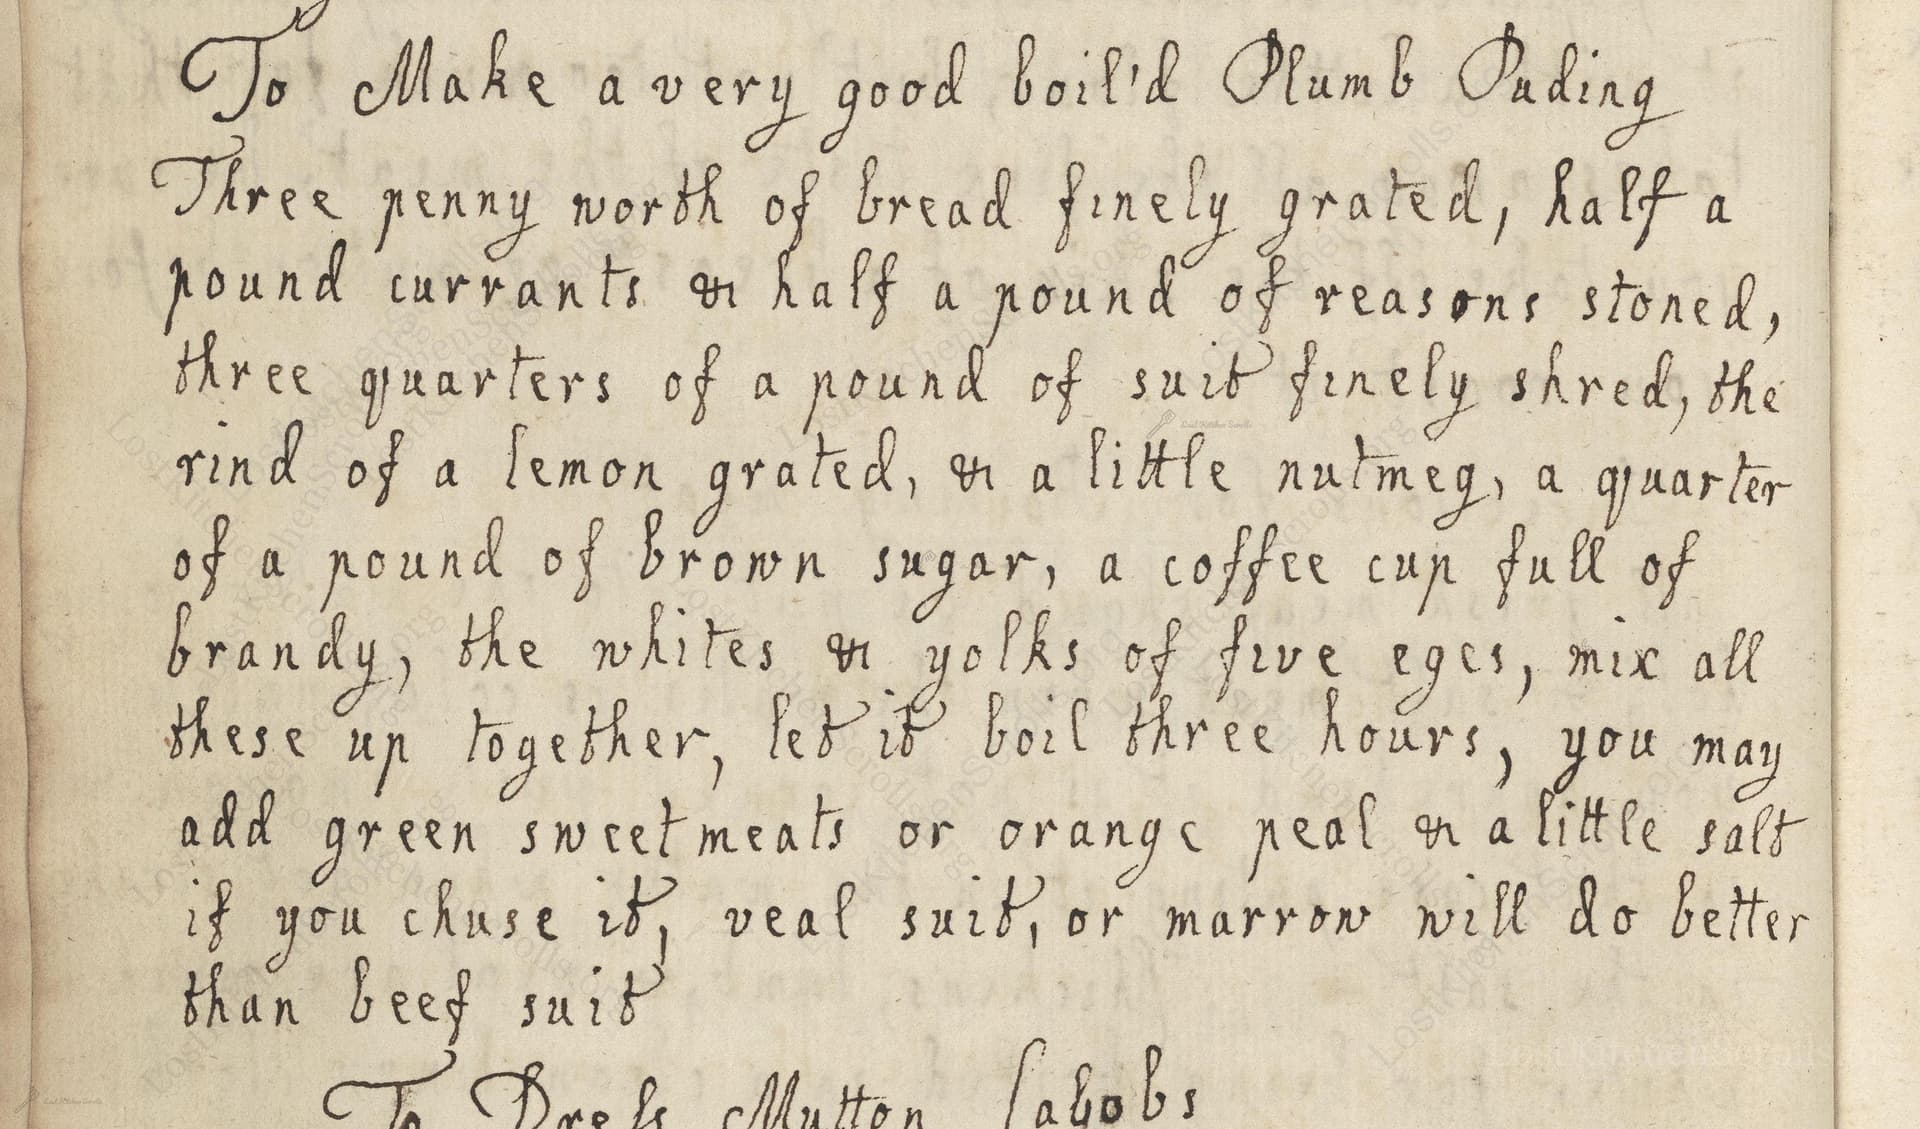 To Make a very good boil'd Plumb Puding
Three penny worth of bread finely grated, half a
pound currants & half a pound of reasons stoned,
three quarters of a pound of suit finely shred, the
rind of a lemon grated, & a little nutmeg, a quarter
of a pound of brown sugar, a coffee cup full of
brandy, the whites & yolks of five eges, mix all
these up together, let it boil three hours, you may
add green sweetmeats or orange peal & a little salt
if you chuse it, veal suit, or marrow will do better
than beef suit
To Dress Mutton Cabobs